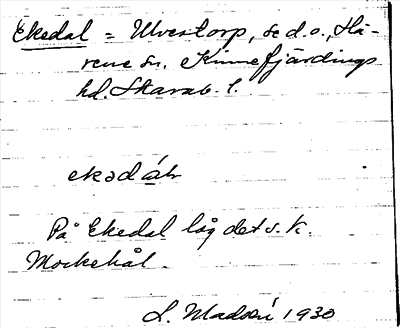 Ekedal = Ulvestorp, se d.o., Hä-
rene sn. Kinnefjärdings
hd. Skarab. l.
ekədáɫ
På Ekedal låg det s.k.
Mockehål.
L. Madsén 1930